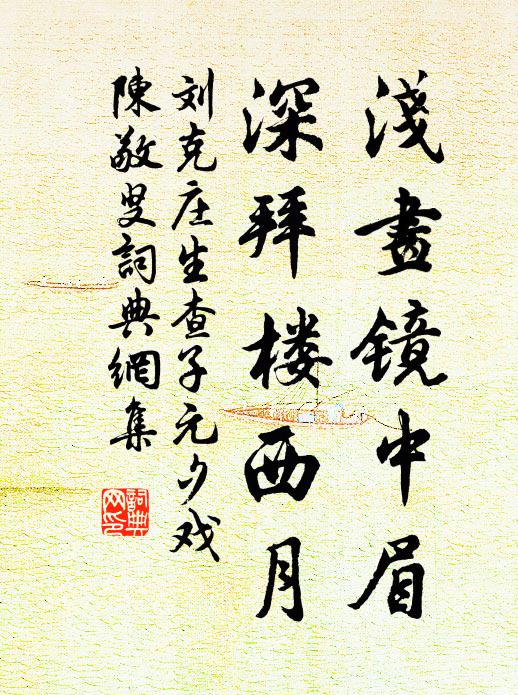 淺畫镜中眉
深拜楼西月
刘克庄生查子元夕戏
陳敬叟詞典網集
詞典网印